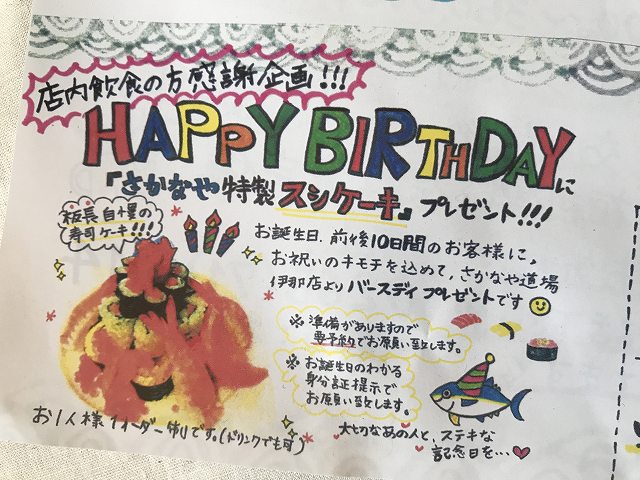 店内飲食の方感謝企画!!!
HAPPY BIRTHDAYに
『さかなや特製スシケーキ』プレゼント!!!
板長自慢の
寿司ケーキ!!!
お誕生日、前後10日間のお客様に、
お祝いのキモチを込めて、さかなや道場
伊那店よりバースディプレゼントです
※ 準備がありますので
要予約でお願い致します。
※ お誕生日のわかる
身分証提示で
お願い致します。
お1人様1オーダー制です。(ドリンクでも可)
大切なあの人と、ステキな
記念日を…